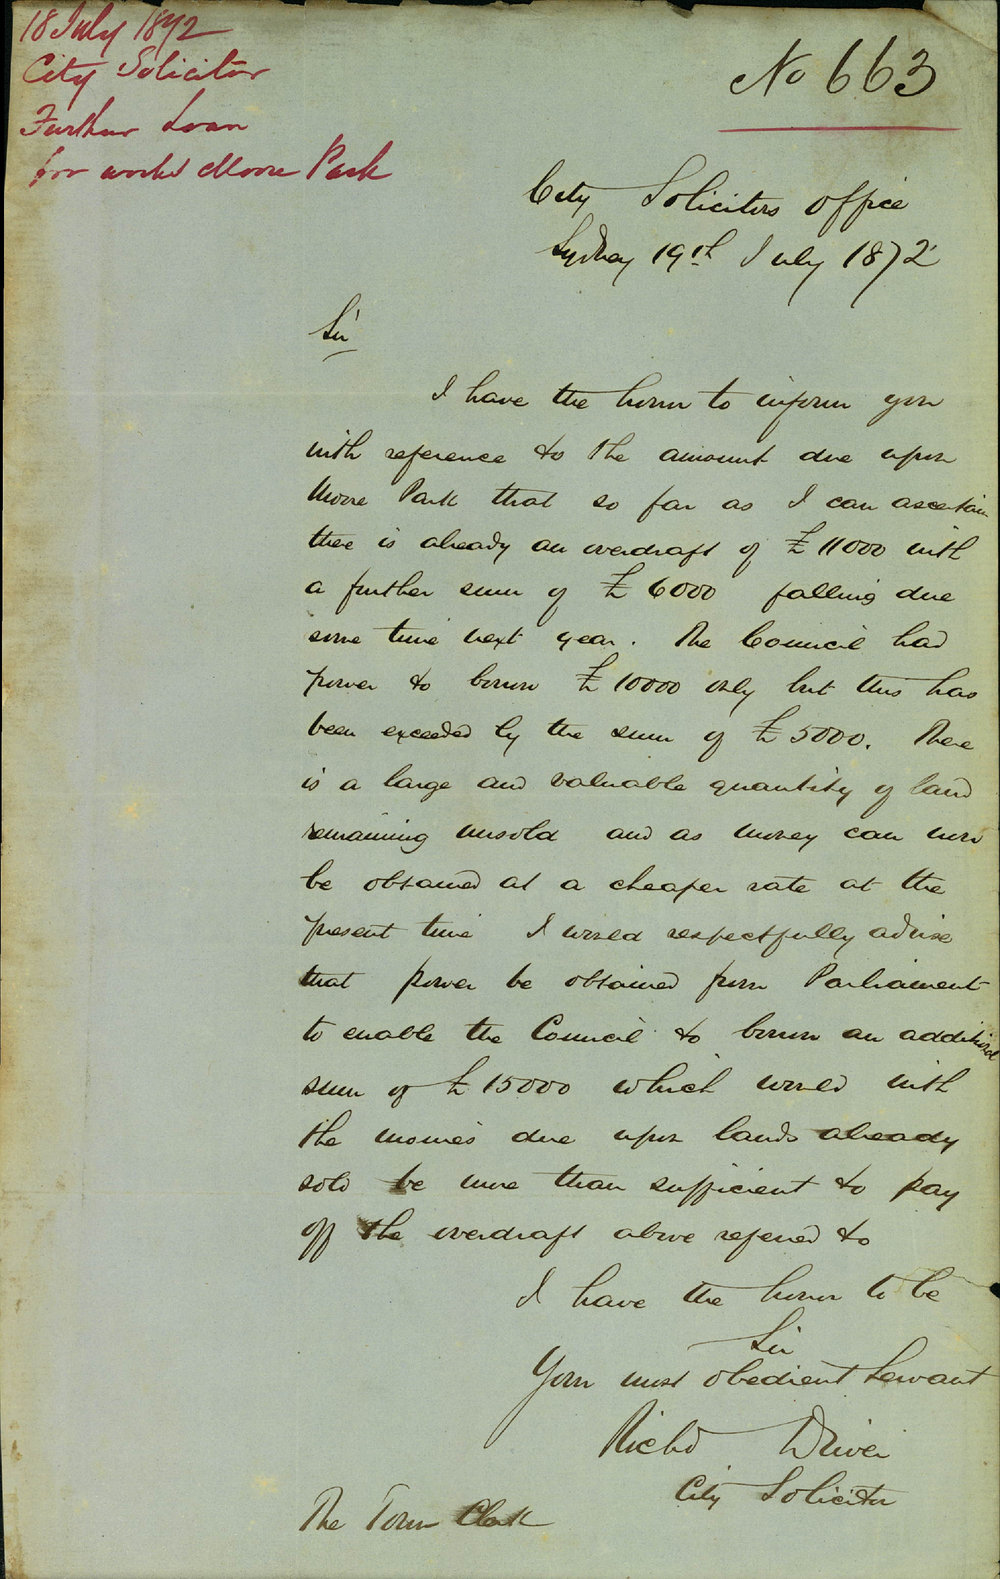 18 July 1872
City Solicitor
Further Loan
for works Moore Park
No 663
City Solicitors Office
Sydney 19th July 1872
Sir
I have the honor to inform you
with reference to the amount due upon
Moore Park that so far as I can ascertain
there is already an overdraft of £11000 with
a further sum of £6000 falling due
some time next year. The Council had
power to borrow £10000 only but this has
been exceeded by the sum of £5000. There
is a large and valuable quantity of land
remaining unsold and as money can now
be obtained at a cheaper rate at the
present time I would respectfully advise
that power be obtained from Parliament
to enable the Council to borrow an additional
sum of £15000 which would with
the monies due upon lands already
sold be more than sufficient to pay
off the overdraft above referred to
I have the honor to be
Sir
Your most obedient Servant
Richd Driver
City Solicitor
The Town Clerk